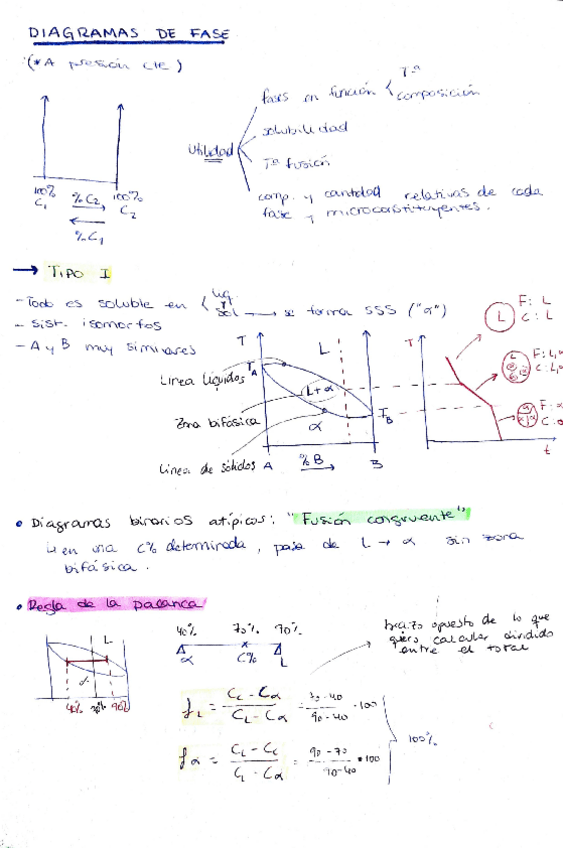 DIAGRAMAS DE FASE
(*A presión cte)
100% C1
%C2
100% C2
%C1
Utilidad
fases en función
Tª
composición
solubilidad
Tª fusión
comp. y cantidad relativas de cada
fase y microconstituyentes.
→ TIPO I
- Todo es soluble en
líq
sol → se forma SSS ("α")
- Sist. isomorfos
- A y B muy similares
T
L
TA
Línea líquidos
L+α
Zona bifásica
α
TB
Línea de sólidos
A
%B
B
T
L
F: L
C: L
F: L,α
C: L
F: α
t
• Diagramas binarios atípicos: "Fusión congruente"
↳ en una C% determinada, pasa de L → α sin zona
bifásica.
• Regla de la palanca
L
α
40% 70% 90%
40% 70% 90%
α C% L
brazo opuesto de lo que
quiero calcular dividido
entre el total
fL = CC - Cα / CL - Cα = 70-40 / 90-40 · 100
fα = CL - CC / CL - Cα = 90-70 / 90-40 · 100
100%